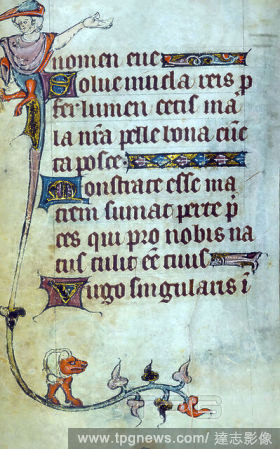 nomen eue
Solue uincla reis p
fer lumen cecis ma
la nr̄a pelle bona cūc
ta posce
Monstrate esse ma
trem sumat perte p̄
ces qui pro nobis na
tus tulit eē tuus
Uirgo singularis i
www.tpgnews.com/ 達志影像